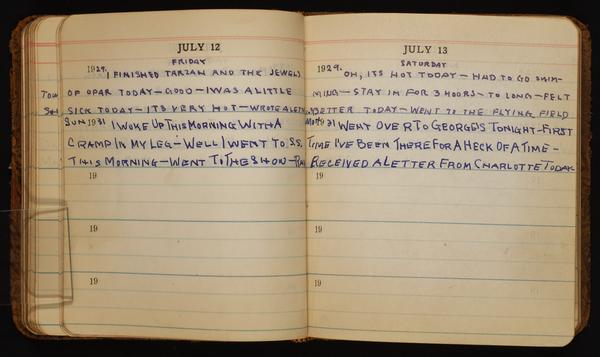 JULY 12
FRIDAY
1929. I FINISHED TARZAN AND THE JEWELS
OF OPAR TODAY - GOOD - I WAS A LITTLE
SICK TODAY - IT'S VERY HOT - WROTE A LET
SUN 1931 I WOKE UP THIS MORNING WITH A
CRAMP IN MY LEG - WELL I WENT TO S.S.
THIS MORNING - WENT TO THE SHOW -
19
19
19
JULY 13
SATURDAY
1929. OH, IT'S HOT TODAY - HAD TO GO SWIM-
MING - STAY IN FOR 3 HOURS - TO LONG - FELT
BETTER TODAY - WENT TO THE FLYING FIELD
MON 1931 I WENT OVER TO GEORGE'S TONIGHT - FIRST
TIME I'VE BEEN THERE FOR A HECK OF A TIME -
RECEIVED A LETTER FROM CHARLOTTE TODAY
19
19
19